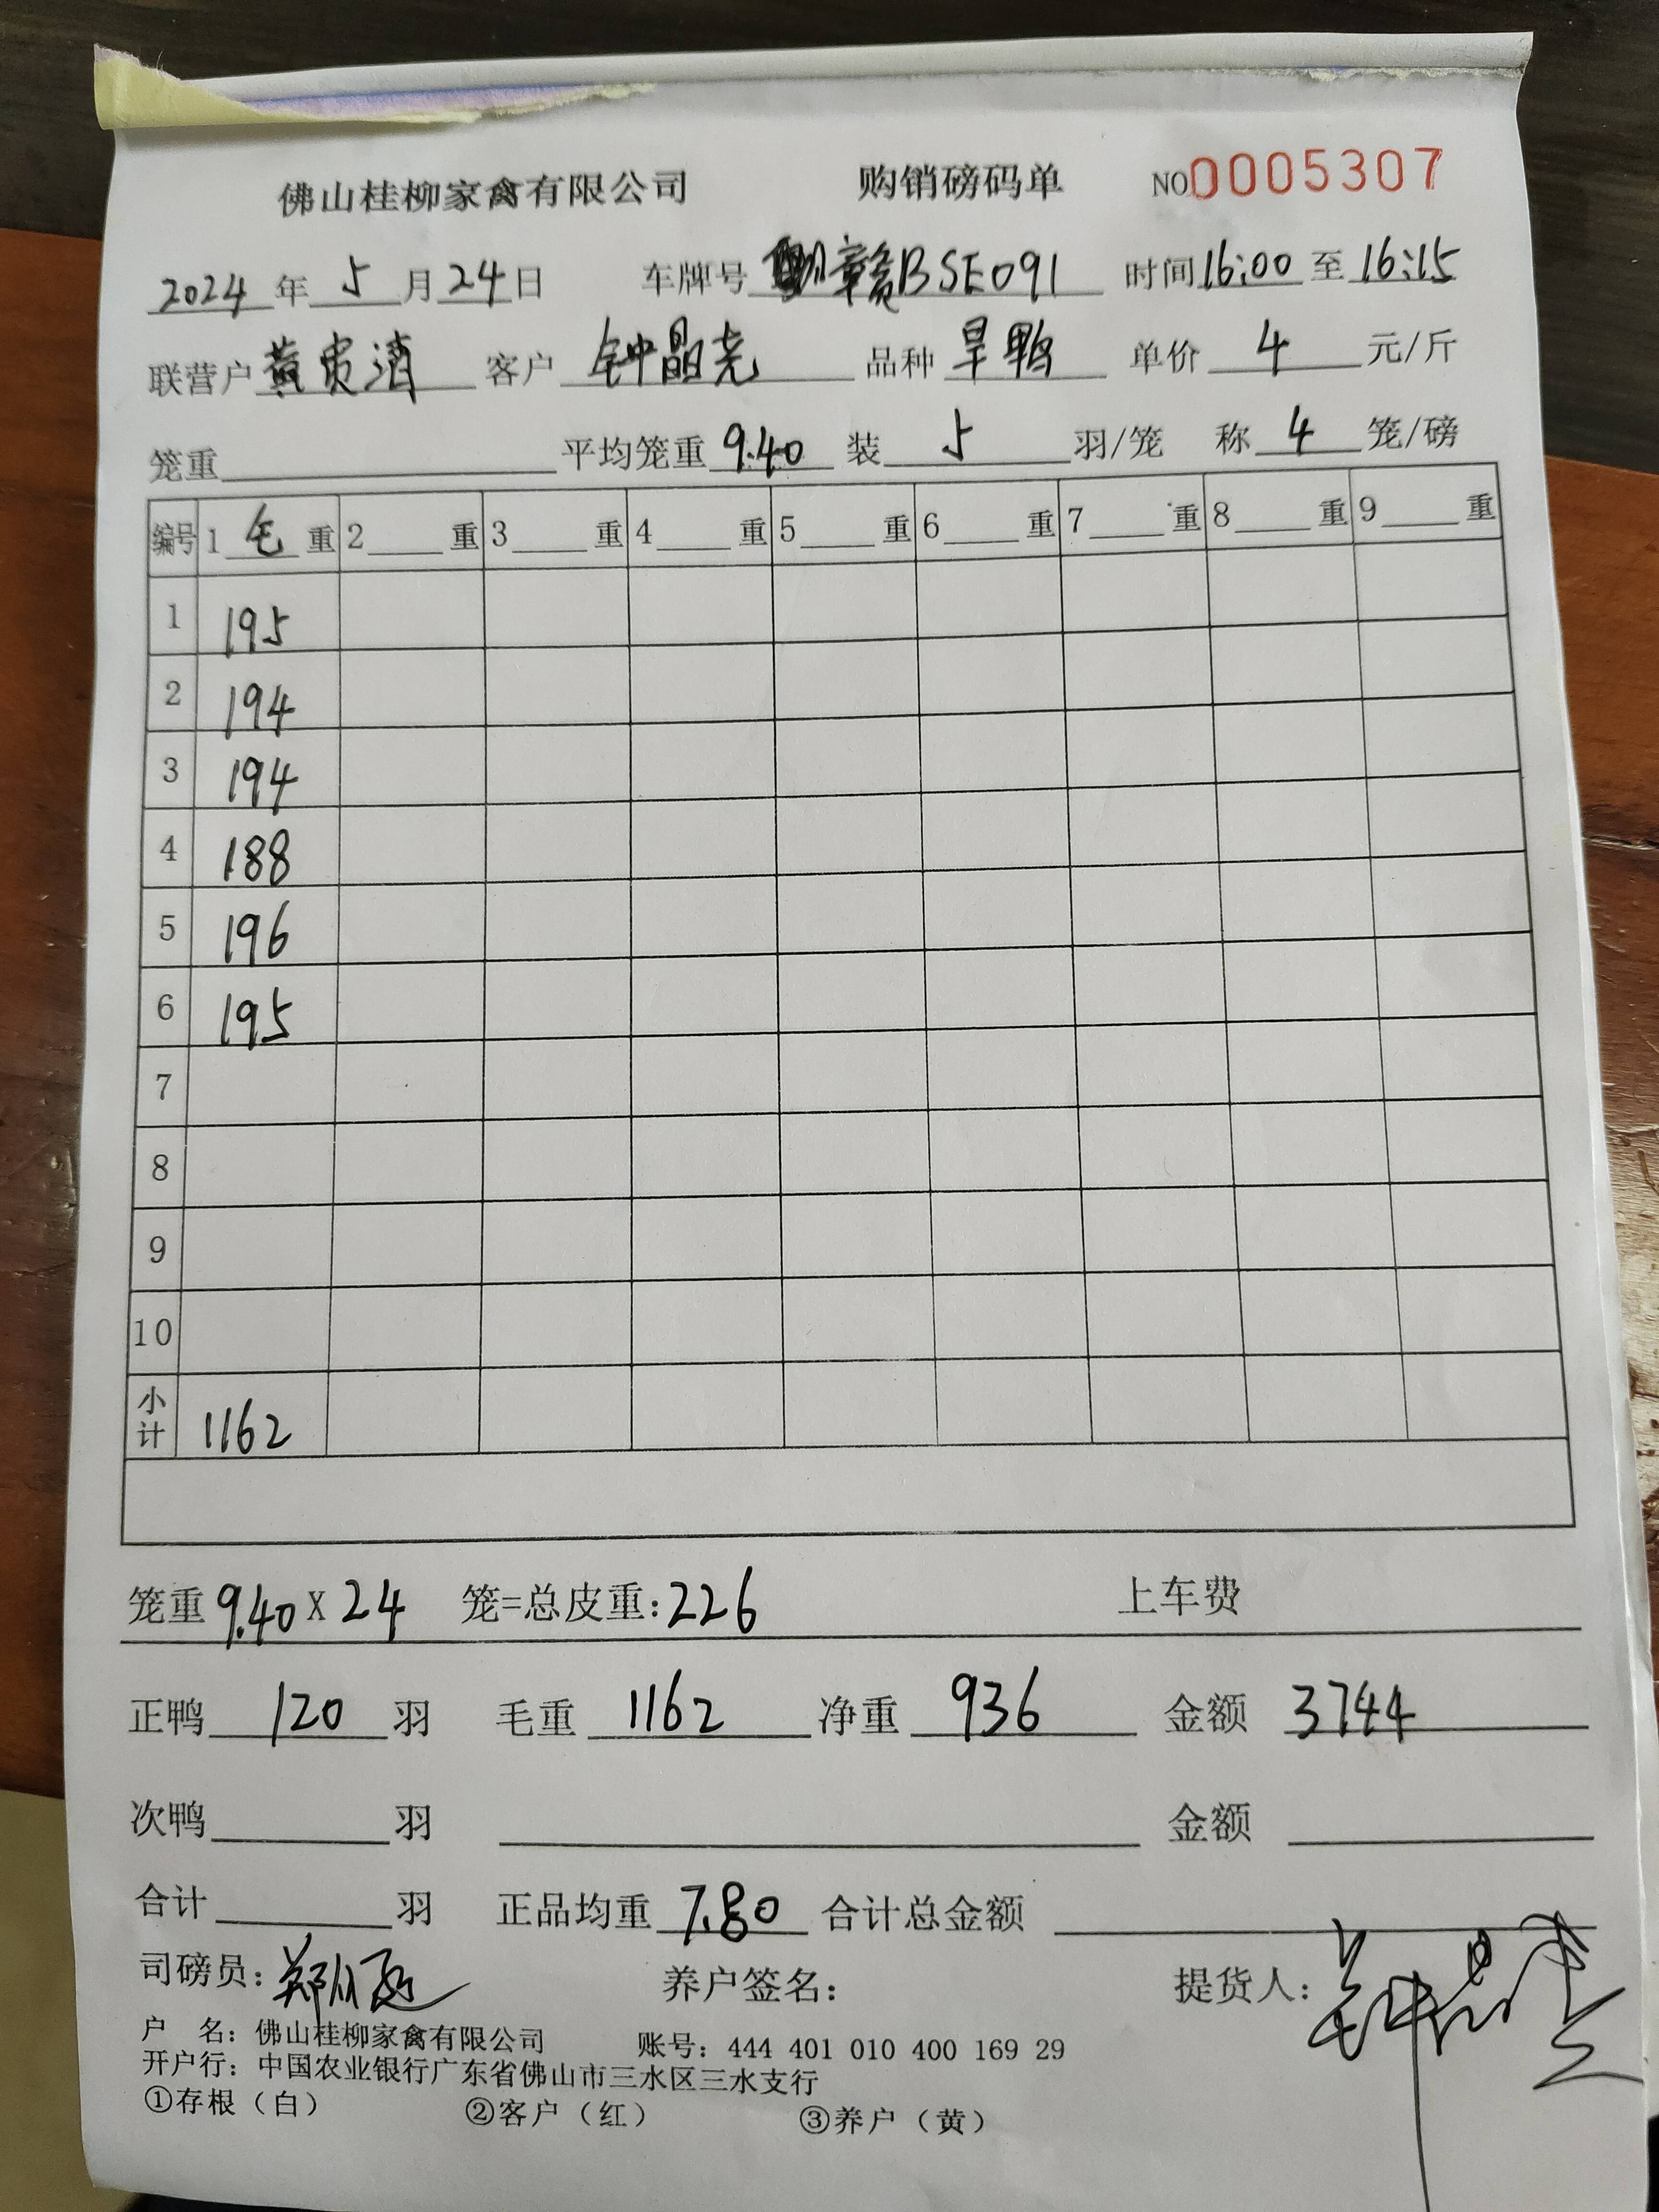 佛山桂柳家禽有限公司 购销磅码单 NO 0005307
2024 年 5 月 24 日 车牌号 赣BSE091 时间 16:00 至 16:15
联营户 黄贵清 客户 钟晶尧 品种 旱鸭 单价 4 元/斤
笼重 平均笼重 9.40 装 5 羽/笼 称 4 笼/磅
编号 1 毛 重 2 重 3 重 4 重 5 重 6 重 7 重 8 重 9 重
1 195
2 194
3 194
4 188
5 196
6 195
7
8
9
10
小计 1162
笼重 9.40 X 24 笼=总皮重: 226 上车费
正鸭 120 羽 毛重 1162 净重 936 金额 3744
次鸭 羽 金额
合计 羽 正品均重 7.80 合计总金额
司磅员: 养户签名: 提货人:
户 名: 佛山桂柳家禽有限公司 账号: 444 401 010 400 169 29
开户行: 中国农业银行广东省佛山市三水区三水支行
①存根（白） ②客户（红） ③养户（黄）